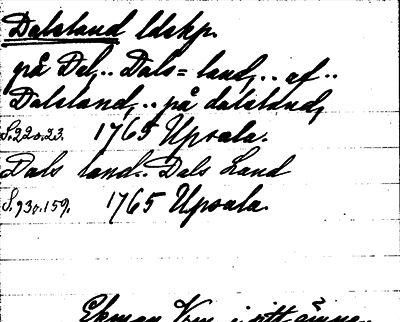 Dalsland ldskp.
på Dal, .. Dals=land, .. af ..
Dalsland, .. på dalsland,
S. 220. 23. 1765 Upsala.
Dals land.. Dals Land
S. 930. 159. 1765 Upsala.
Ekman Vern. i sitt ämne